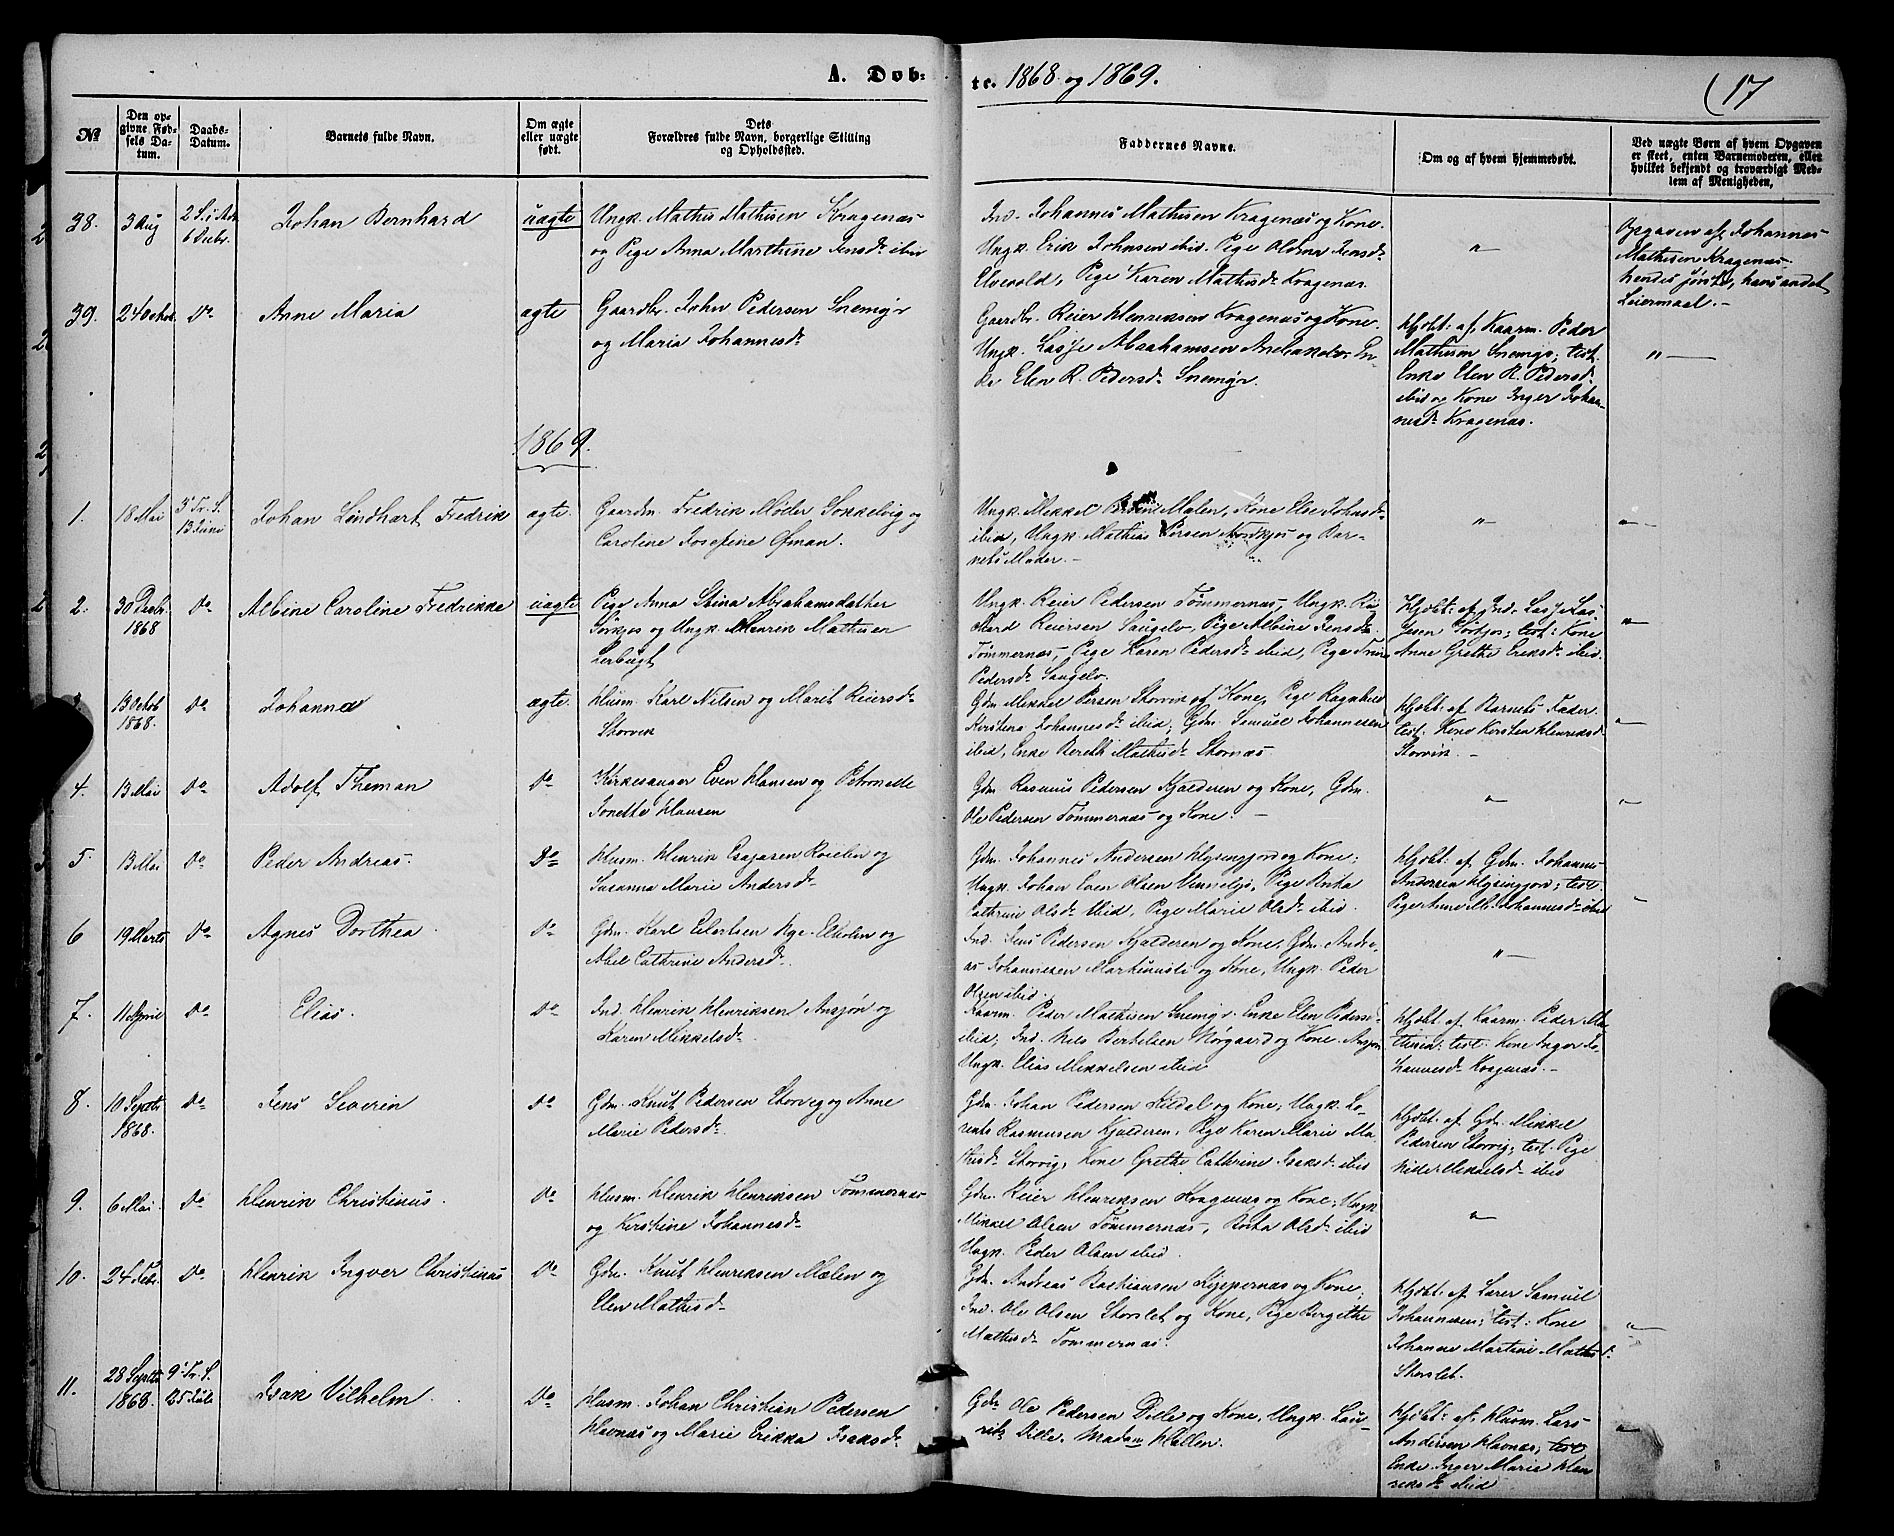 A. Døb-
te. 1868 og 1869.
(17
No
Den op-
givne Fød-
sels Da-
tum.
Daabs-
Datum.
Barnets fulde Navn.
Om ægte
eller uægte
født.
Dets
Forældres fulde Navn, borgerlige Stilling
og Opholdssted.
Faddernes Navne.
Om og af hvem hjemmedøbt.
Ved uægte Børn af hvem Opgaven
er skeet, enten Barnemoderen, eller
hvilket bekjendt og troværdigt Med-
lem af Menigheden.
38.
3 Aug
2 S. i Adv.
6 Decbr.
Johan Bernhard
uægte
Ungk. Mathis Mathisen Kragenæs
og Pige Anna Marthine Jensdr ibid
Ind. Johannes Mathisen Kragenæs og Kone.
Ungk. Erik Johnsen ibid. Pige Oldina Jensdr
Elvevold, Pige Karen Mathisdr Kragenæs.
"
Opgaven af Johannes
Mathisen Kragenæs.
hendes første, hans andet
Leiermaal. -
39.
24 Octob.
Do
Anne Maria
ægte
Gaardbr. John Pedersen Snemyr
og Maria Johannesdr
Gaardbr. Reier Henriksen Kragenæs og Kone.
Ungk. Lasse Abrahamsen En-
ke Elen R. Pedersdr Snemyr.
Hjdbt: af Kaarm. Peder
Mathisen Snemyr; test.
Enke Elen R. Pedersdr
ibid og Kone Inger Johan-
nesdr Kragenæs.
" -
1869.
1.
18 Mai
3 Tr. S.
13 Juni
Johan Lindhart Fredrik
ægte.
Gaardm. Fredrik Møder Sokkelvig og
Caroline Josefine Öman.
Ungk. Mikkel Mælen, Kone Else Johnsdr
ibid, Ungk. Mathias Persen og Bar-
nets Moder. -
"
"
2.
30 Decbr.
1868
Do
Albine Caroline Fredrikke
uægte
Pige Anna Stina Abrahamsdatter
Sørkjos og Ungk. Henrik Mathisen
Lerbugt
Ungk. Reier Pedersen Tømmernæs, Ungk. Ri-
kard Reiersen Saugelv, Pige Albine Jensdr
Tømmernæs, Pige Karen Pedersdr ibid, Pige Trine
Pedersdr Saugelv.
Hjdbt: af Ind. Lasse Las-
sesen Sørkjos; test: Kone
Anne Grethe Eriksdr ibid.
"
13 Octob
1868.
Do
Johanna
ægte.
Husm. Karl Nilsen og Marit Reiersdr
Storvik
Gdm Mikkel Persen Storvik og Kone, Pige Ragnhild
Kirstina Johannesdr ibid, Gdm. Samuel Johannesen
ibid, Enke Berith Mathisdr Stornæs
Hjdbt. af Barnets Fader.
test: Kone Kirsten Henriksdr
Storvik. -
"
4.
13 Mai
Do
Adolf Theman
Do
Kirkesanger Even Hansen og Petronelle
Jonette Hansen
Gdm Rasmus Pedersen Kjælderen og Kone, Gdm.
Ole Pedersen Tømmernæs og Kone. -
"
"
5.
13 Mai
Do
Peder Andreas.
Do
Husm. Henrik Esajasen Roielen og
Susanna Marie Andersdr
Gdm. Johannes Andersen Hysingjord og Kone;
Ungk. Johan Even Olsen, Pige Berta
Cathrine Olsdr ibid, Pige Marie Olsdr ibid.
Hjdbt: af Gdm. Johannes
Andersen Hysingjord; test.
Pige Anne M. Johannesdr ibid
"
6
19 Marts
Do
Agnes Dorthea.
Do
Gdm. Karl Eilertsen Kye og
Abel Cathrine Andersdr.
Ind. Jens Pedersen Kjælderen og Kone, Gdm. Andre-
as Johannesen og Kone, Ungk. Peder
Olsen ibid.
" -
7.
11 April
Do
Elias.
Do
Ind. Henrik Henriksen Ansjøn og
Karen Mikkelsdr.
Kaarm. Peder Mathisen Snemyr. Enke Elen Pedersdr
ibid, Ind. Nils Bertelsen Nørgaard og Kone. Ansjøn
Ungk. Elias Mikkelsen ibid
Hjdbt. af Kaarm. Peder Ma-
thisen: test. Kone Inger Jo-
hannesdr Kragenæs. -
8.
10 Septbr
1868.
Do
Jens Severin
Do
Gdm. Knut Pedersen Storvig og Anne
Marie Pedersdr.
Gdm. Johan Pedersen Kildal og Kone, Ungk. Lo-
rents Rasmussen Kjælderen, Pige Karen Marie Ma-
thisdr Storvig, Kone Grethe Cathrine Isaksdr ibid
Hjdbt: af Gdm. Mikkel
Pedersen Storvig; test. Pige
Mikkelsdr ibid
9.
6 Mai.
Do
Henrik Christinus.
Do
Husm. Henrik Henriksen Tømmernæs
og Kirstine Johannesdr
Gdm. Reier Henriksen Kragenæs og Kone, Ungk
Mikkel Olsen Tømmernæs, Berta Olsdr ibid
Ungk. Peder Olsen ibid.
"
10.
24 Febr.
Do
Henrik Ingver Christinus
Do
Gdm. Knut Henriksen Mælen og
Elen Mathisdr
Gdm. Andreas Bastiansen Kjepernæs og Kone,
Ind. Ole Olsen Storslet og Kone, Pige Bergithe
Mathisdr Tømmernæs.
Hjdbt. af Lærer Samuel
Johannesen; test: Kone
Johanne Martine Mathisdr
Storslet.
"
11.
28 Septbr
1868.
9 Tr. S.
25 Juli
Isak Vilhelm.
Do
Husm. Johan Christian Pedersen
Havnæs og Marie Erikka Isaksdr
Gdm Ole Pedersen Dille og Kone, Ungk. Lau-
rits Dille. Madam Hallen.
Hjdbt: af Husm. Lars
Andersen Havnæs, test
Enke Inger Marie Hen-
riksdr ibid
"